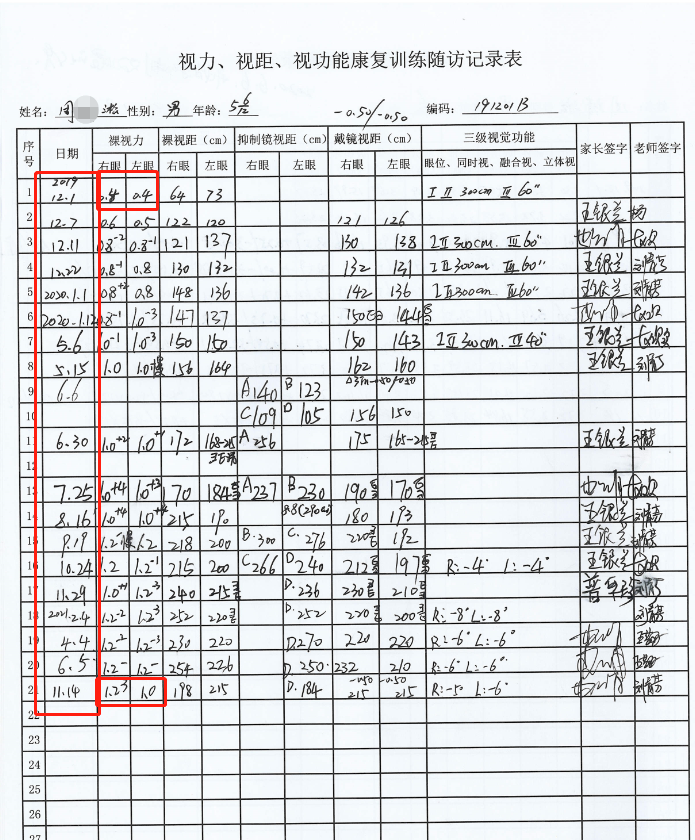 视力、视距、视功能康复训练随访记录表
姓名: 性别: 男 年龄: 5岁 -0.50/-0.50 编码: 191201B
序号 日期 裸视力 裸视距(cm) 抑制镜视距(cm) 戴镜视距(cm) 三级视觉功能 家长签字 老师签字
右眼 左眼 右眼 左眼 右眼 左眼 右眼 左眼 眼位、同时视、融合视、立体视
1 2019 12.1 0.4 0.4 64 73 I II 300cm III 60"
2 12.7 0.6 0.5 122 120 121 126 王银兰
3 12.11 0.8⁻² 0.8⁻¹ 121 137 130 138 I II 300cm. III 60"
4 12.22 0.8⁻¹ 0.8 130 132 132 131 I II 300cm. III 60" 王银兰
5 2020.1.1 0.8⁺² 0.8 148 136 142 136 I II 300cm III 60" 王银兰
6 2020.1.12 0.8⁻¹ 1.0⁻³ 147 137 150 144
7 5.6 1.0⁻¹ 1.0⁻³ 150 150 150 143 I II 300cm. III 40" 王银兰
8 5.15 1.0 1.0 156 164 162 160 王银兰
9 6.6 A 140 B 123
10 C 109 D 105 156 150
11 6.30 1.0⁺² 1.0⁺ 172 168-215 A 256 175 165-215 王银兰
12
13 7.25 1.0⁺⁴ 1.0⁺³ 170 184 A 237 B 230 190 170
14 8.16 1.0⁺⁴ 1.0⁺⁴ 215 190 180 193 王银兰
15 9.19 1.2⁻ 1.2 218 200 B. 300 C. 276 220 192 王银兰
16 10.24 1.2 1.2⁻¹ 215 200 C 266 D 240 212 197 R: -4° L: -4° 王银兰
17 11.29 1.0⁺¹ 1.2³ 240 215 D. 236 230 210
18 2021.2.4 1.2⁻² 1.2³ 252 220 D. 252 220 200 R: -8° L: -8°
19 4.4 1.2⁻² 1.2⁻³ 230 220 D. 270 220 220 R: -6° L: -6°
20 6.5 1.2⁻ 1.2⁻ 254 226 D. 250 232 210 R: -6° L: -6°
21 11.14 1.2³ 1.0 198 215 D. 184 -0.50 -0.50 215 215 R: -5° L: -6°
22
23
24
25
26
27